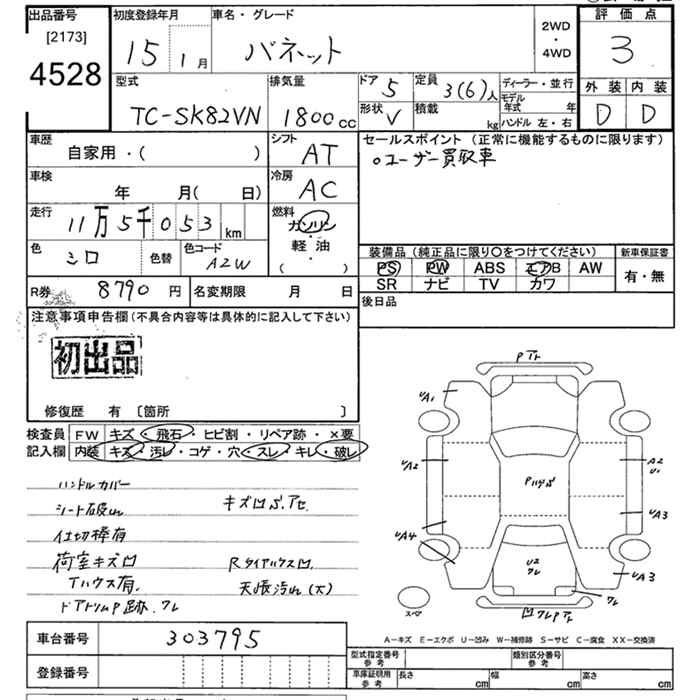 出品番号 初度登録年月 車名・グレード 2WD ・ 4WD 評価点
[2173]
4528
15年 1月 バネット 3
型式 排気量 ドア 定員 ディーラー・並行 外装 内装
TC-SK82VN 1800cc 5 3(6)人 モデル年式 年 D D
形状 V 積載 kg ハンドル 左・右
車歴 シフト セールスポイント(正常に機能するものに限ります)
自家用・( ) AT ○ユーザー買取車
車検 冷房
年 月( 日) AC
走行 燃料
11万5千053km ガソリン
・
軽油
( )
色 色替 色コード 装備品(純正品に限り○をつけてください) 新車保証書
シロ A2W PS PW ABS エアB AW 有・無
SR ナビ TV カワ
R券 8790円 名変期限 月 日 後日品
注意事項申告欄(不具合内容等は具体的に記入して下さい)
初出品
修復歴 有 [箇所 ]
検査員 FW キズ・飛石・ヒビ割・リペア跡・×要
記入欄 内装 キズ・汚レ・コゲ・穴・スレ・キレ・破レ
ハンドルカバー
シート破れ キズ凹
仕切棒有
荷室キズ凹 Rタイヤハウス凹
Tハウス有. 天張汚れ(大)
ドアトリムP跡.ワレ
UA1
UA2 A2
U1
UA3
UA4 UA3
U2
ワレ
ワレ
スペア
A−キズ E−エクボ U−凹み W−補修跡 S−サビ C−腐食 XX−交換済
車台番号 303795
型式指定番号 参考 類別区分番号 参考
登録番号 車庫証明用 参考 長さ cm 幅 cm 高さ cm